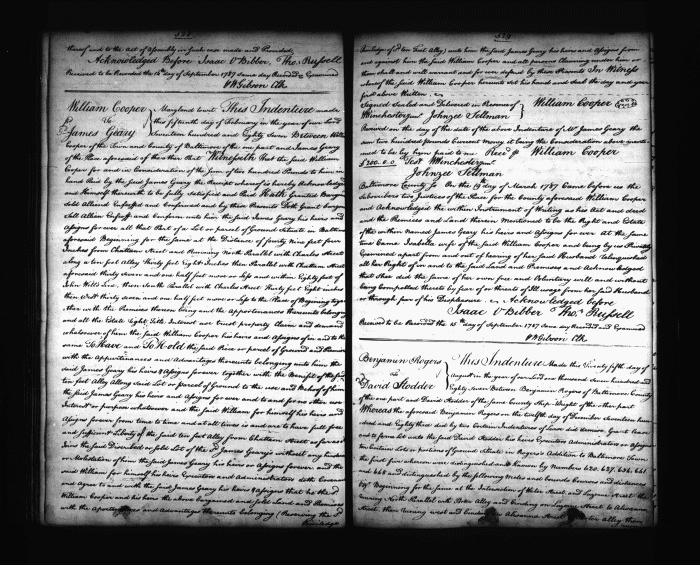 thereof and to the Act of Assembly in such case made and Provided.
Acknowledged Before Isaac V Bibber Tho. Russell
Received to be Recorded the 15th day of September 1787 Same day Recorded & Examined
W Gibson Clk
William Cooper
To
James Geary
Maryland Sct This Indenture made
this fifteenth day of February in the year of our Lord
Seventeen hundred and Eighty Seven Between William
Cooper of the Town and County of Baltimore of the one part and James Geary
of the Place aforesaid of the other Part Witnesseth That the said William
Cooper for and in Consideration of the Sum of two hundred Pounds to him in
hand Paid by the said James Geary the Receipt whereof is hereby Acknowledged
and himself therewith to be fully satisfied and Paid Hath Granted Bargained
sold Aliened Enfeoffed and Confirmed and by these Presents Doth Grant Bargain
Sell Alien Enfeoff and Confirm unto him the said James Geary his heirs and
Assigns for ever all that Part of a Lot or parcel of Ground Situate in Baltimore
aforesaid Beginning for the same at the Distance of forty Nine feet four
Inches from Chatham Street and Running North Parallel with Charles Street
along a ten foot Alley thirty feet Eight Inches then Parallel with Chatham Street
aforesaid thirty seven and one half feet more or less and within Eighty feet of
John Wells Line, then South Parallel with Charles Street thirty feet Eight inches
then West thirty seven and one half feet more or less to the Place of Beginning together
with the Premises thereon being and the Appurtenances thereunto belonging
and all the Estate Right Title Interest use trust property Claim and demand
whatsoever of him the said William Cooper his heirs and Assigns of in and to the
same To Have and To Hold the said Piece or Parcel of Ground and Premises
with the Appurtenances and Advantages thereunto belonging unto him the
said James Geary his heirs & Assigns forever together with the Benefit of the said
ten foot Alley Along said Lot or parcel of Ground to the use and Behoof of him
the said James Geary his heirs and Assigns for ever and to and for no other use
Intent or purpose whatsoever and the said William for himself his heirs and
Assigns forever from time to time and at all times
and sufficient Liberty of the said ten foot Alley from Chatham Street
James Geary's without any hindrance
or Molestation of him the said James Geary his heirs or Assigns forever and the
said William for himself his heirs Executors and Administrators doth Covenant
and Agree to and with the said James Geary his heirs & Assigns that he the said
William Cooper and his heirs the above bargained and sold Land and Premises
with the Appurtenances and Advantages thereunto belonging (Reserving the
Priviledge
529
Priviledge of ten foot Alley) unto him the said James Geary his heirs and Assigns from
and against him the said William Cooper and all persons Claiming under him or
them shall and will warrant and for ever defend by these Presents In Witness
whereof the said William Cooper hereunto set his hand and Seal the day and year
first above Written
Signed Sealed and Delivered in Presence of
W Winchester Johnzee Sellman
William Cooper
Received on the day of the date of the above Indenture of Mr James Geary the
sum two hundred Pounds Current Money it being the Consideration above mentioned
to be by him paid to me Recd pr William Cooper
£200.0.0 Test W Winchester
Johnzee Sellman
Baltimore County Ss On the day of March 1787 Came before us the
Subscribers two Justices of the Peace for the County aforesaid William Cooper
and Acknowledged the within Instrument of Writing as his Act and deed
and the Premises and Land therein Mentioned to be the Right and Estate
of the within Named James Geary his heirs and Assigns for ever At the same
time Came Isabella wife of the said William Cooper and being by us Privately
Examined apart from and out of hearing of her said Husband Relinquished
all her Right of in and to the said Land and Premises and Acknowledged
that She did the same of her own free and Voluntary will and without
being Compelled thereto by fear of or threats of Ill usage from her said Husband
or through fear of his Displeasure. Acknowledged before
Isaac V Bibber Tho. Russell
Received to be Recorded the 15th day of September 1787 same day Recorded and Examined
W Gibson Clk
Benjamin Rogers
To
David Stodder
This Indenture Made this Twenty fifth day of
August in the year of our Lord one thousand seven hundred and
Eighty Seven Between Benjamin Rogers of Baltimore County
of the one part and David Stodder of the same County Ship Wright of the other part
Whereas the aforesaid Benjamin Rogers on the twelfth day of December Seventeen hundred
and Eighty three did by two Certain Indentures of Lease did demise Grant
and to farm let unto the said David Stodder his heirs Executors Administrators or Assigns
the certain Lots or portions of Ground Situate in Rogers's Addition to Baltimore Town
the first five whereof were distinguished and known by Numbers 620. 627. 636. 661
and 668 and distinguished by the following Metes and bounds Courses and distances
Beginning for the same at the Intersection of Aisle Street and Eugene Street the
running North Parallel with Alley and binding on Eugene Street to Alisanna
Street, then running west and binding on Alisanna Street to Alley then